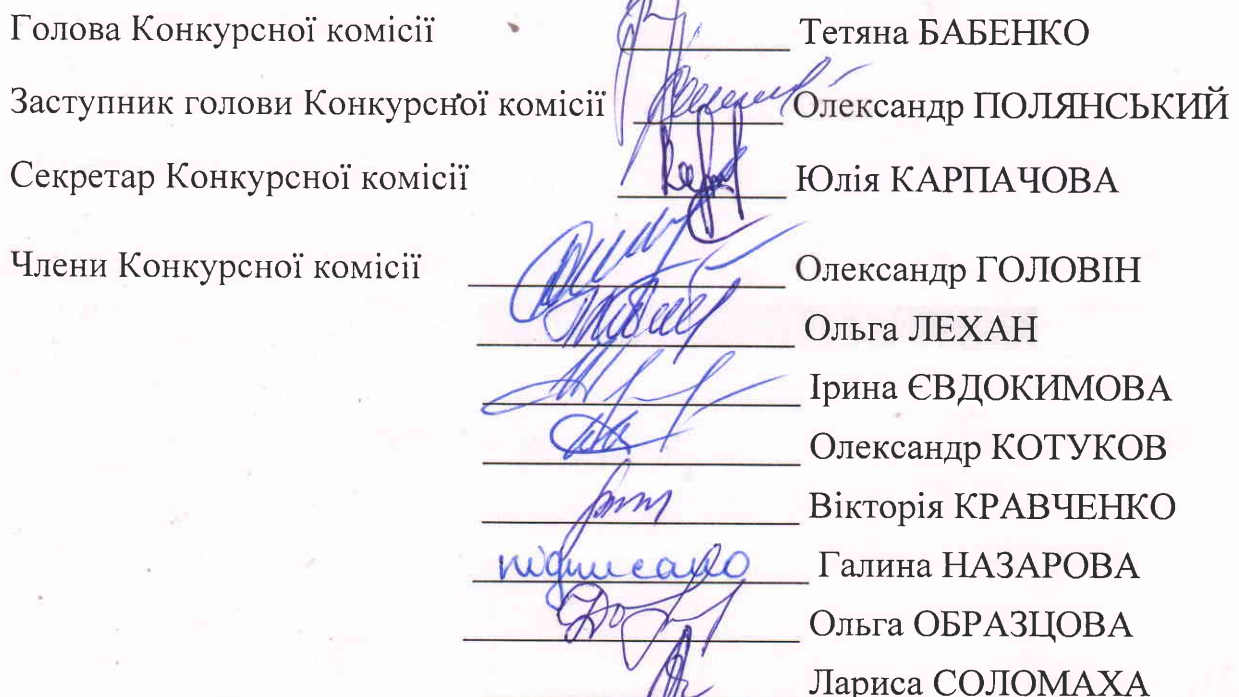 Голова Конкурсної комісії Тетяна БАБЕНКО
Заступник голови Конкурсної комісії Олександр ПОЛЯНСЬКИЙ
Секретар Конкурсної комісії Юлія КАРПАЧОВА
Члени Конкурсної комісії Олександр ГОЛОВІН
Ольга ЛЕХАН
Ірина ЄВДОКИМОВА
Олександр КОТУКОВ
Вікторія КРАВЧЕНКО
підписано Галина НАЗАРОВА
Ольга ОБРАЗЦОВА
Лариса СОЛОМАХА